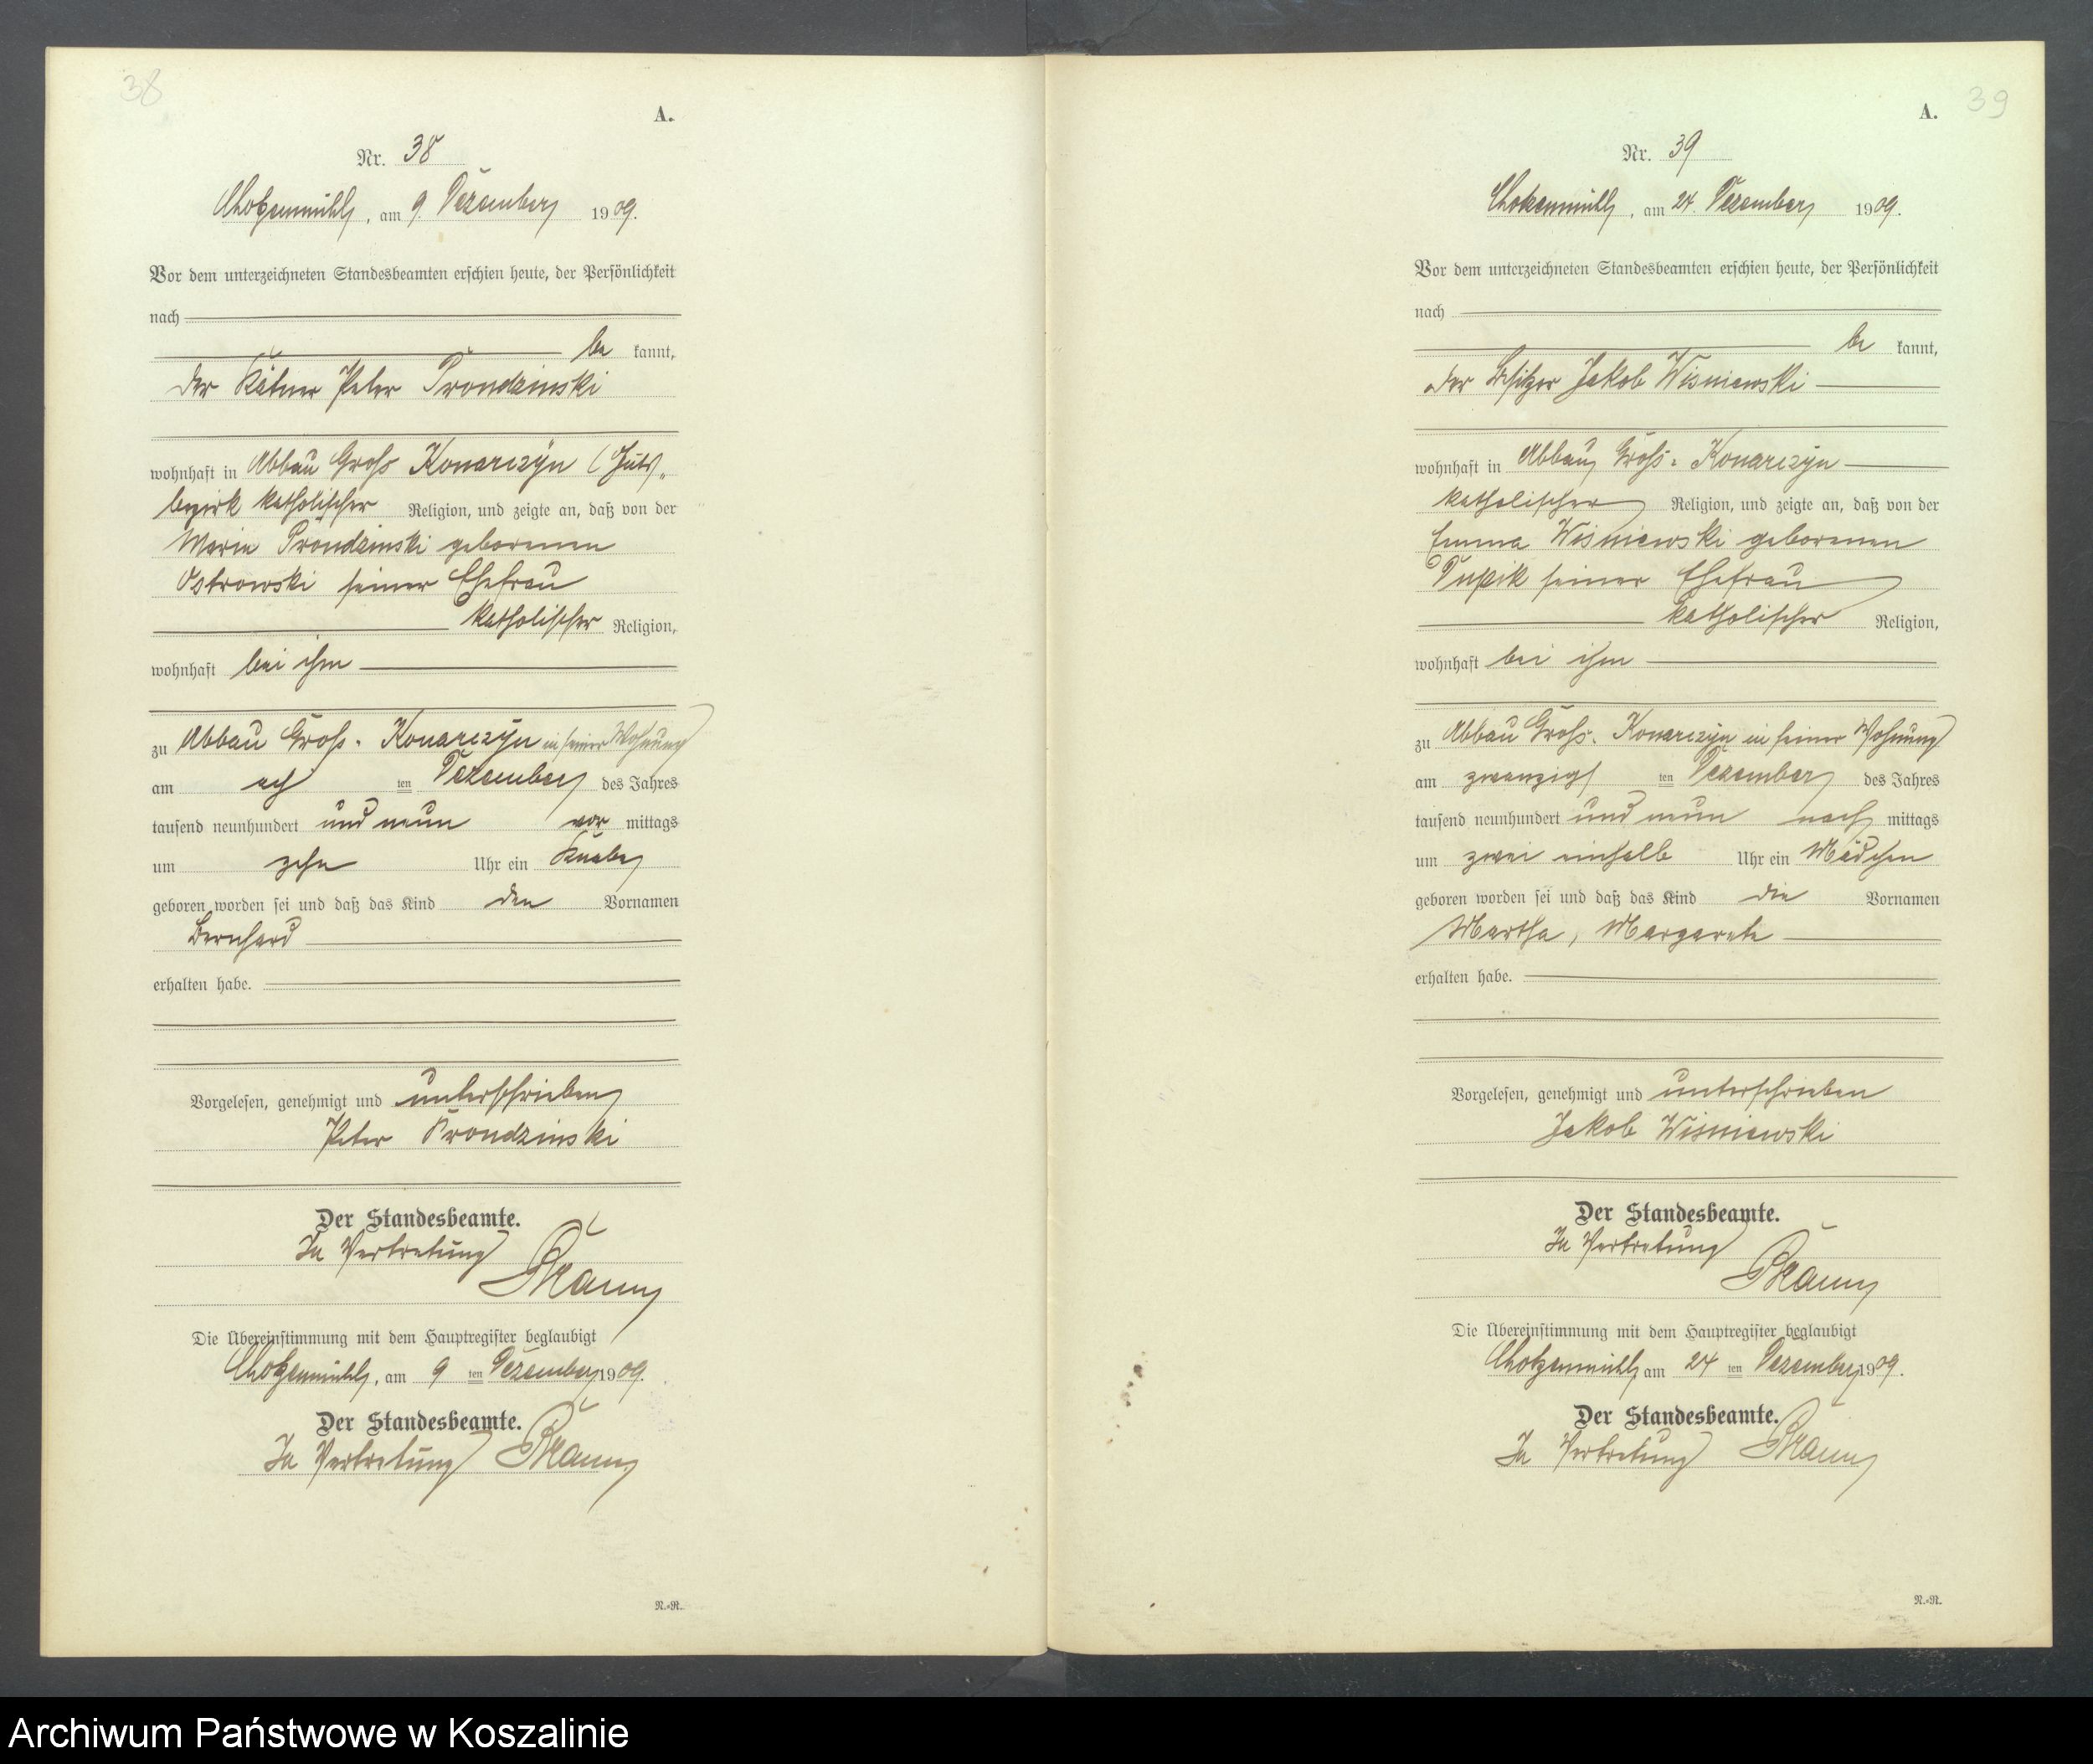 38
A.
Nr. 38
Chotzenmühl, am 9. Dezember 1909.
Vor dem unterzeichneten Standesbeamten erschien heute, der Persönlichkeit
nach
be kannt,
der Kätner Peter Prondzinski
wohnhaft in Abbau Groß Konarczyn (Guts-
bezirk katholischer Religion, und zeigte an, daß von der
Maria Prondzinski geborenen
Ostrowski seiner Ehefrau
katholischer Religion,
wohnhaft bei ihm
zu Abbau Groß-Konarczyn in seiner Wohnung
am ach ten Dezember des Jahres
tausend neunhundert und neun vor mittags
um zehn Uhr ein Knabe
geboren worden sei und daß das Kind den Vornamen
Bernhard
erhalten habe.
Vorgelesen, genehmigt und unterschrieben
Peter Prondzinski
Der Standesbeamte.
In Vertretung
Die Übereinstimmung mit dem Hauptregister beglaubigt
Chotzenmühl, am 9 ten Dezember 1909.
Der Standesbeamte.
In Vertretung
N.-R.
A. 39
Nr. 39
Chotzenmühl, am 24. Dezember 1909.
Vor dem unterzeichneten Standesbeamten erschien heute, der Persönlichkeit
nach
be kannt,
der Besitzer Jakob Wisniewski
wohnhaft in Abbau Groß-Konarczyn
katholischer Religion, und zeigte an, daß von der
Emma Wisniewski geborenen
seiner Ehefrau
katholischer Religion,
wohnhaft bei ihm
zu Abbau Groß-Konarczyn in seiner Wohnung
am zwanzigs ten Dezember des Jahres
tausend neunhundert und neun nach mittags
um zwei einhalb Uhr ein Mädchen
geboren worden sei und daß das Kind die Vornamen
Martha, Margarete
erhalten habe.
Vorgelesen, genehmigt und unterschrieben
Jakob Wisniewski
Der Standesbeamte.
In Vertretung
Die Übereinstimmung mit dem Hauptregister beglaubigt
Chotzenmühl, am 24 ten Dezember 1909.
Der Standesbeamte.
In Vertretung
N.-R.
Archiwum Państwowe w Koszalinie